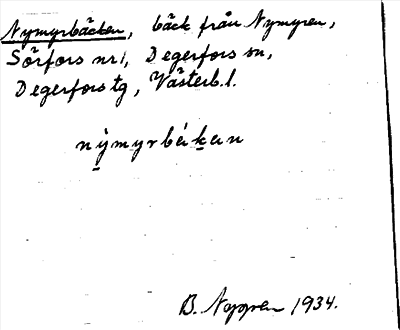 Nymyrbäcken, bäck från Nymyren,
Sörfors nr 1, Degerfors sn,
Degerfors tg, Västerb. l.
nỳmyrbákan
B. Noggren 1934.